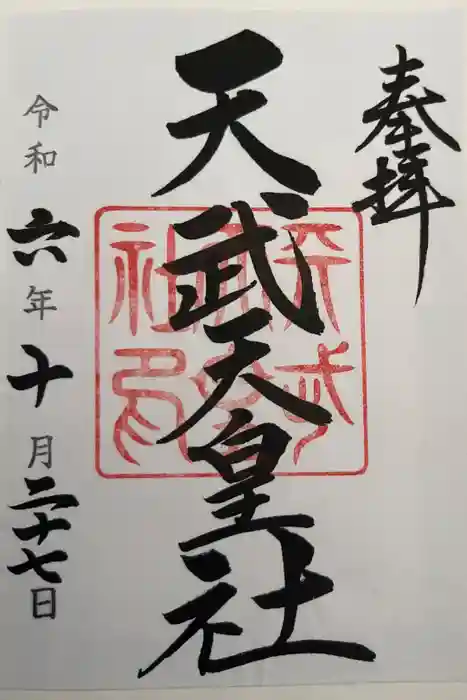 奉拝
天武天皇社
令和六年十月二十七日